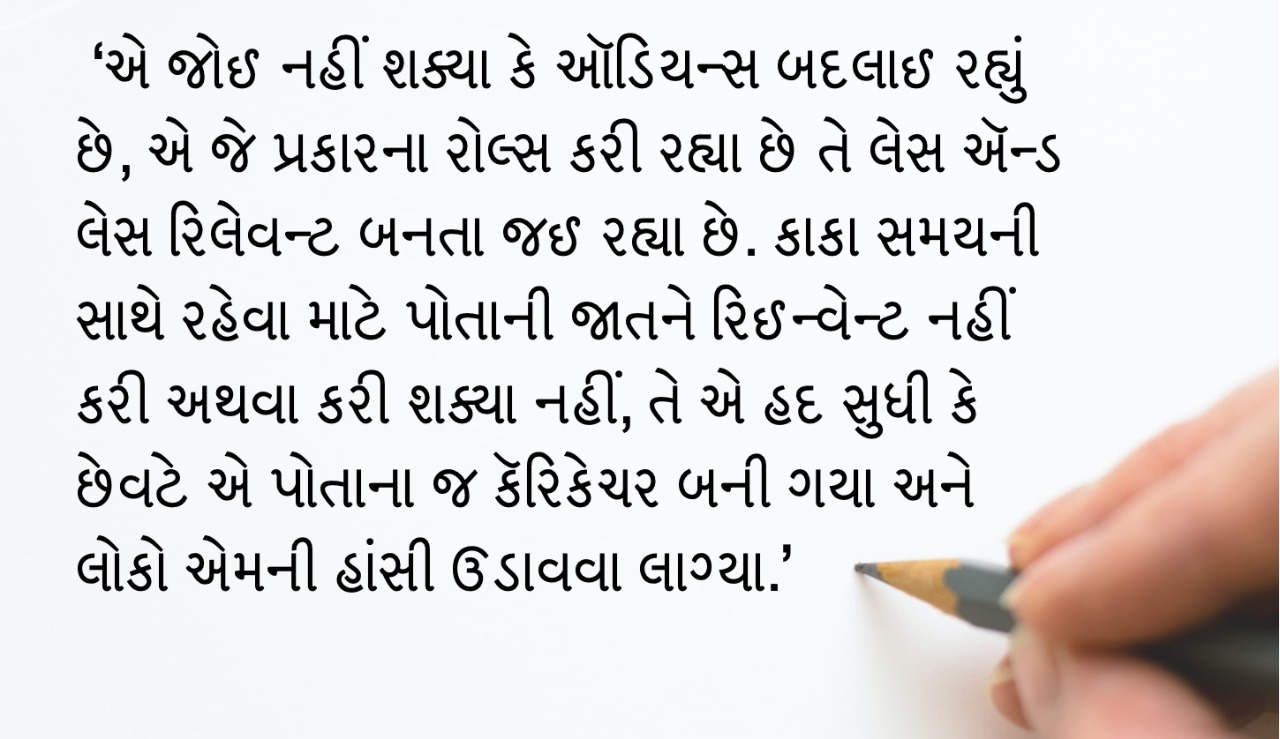 ‘એ જોઈ નહીં શક્યા કે ઑડિયન્સ બદલાઈ રહ્યું
છે, એ જે પ્રકારના રોલ્સ કરી રહ્યા છે તે લેસ ઍન્ડ
લેસ રિલેવન્ટ બનતા જઈ રહ્યા છે. કાકા સમયની
સાથે રહેવા માટે પોતાની જાતને રિઈન્વેન્ટ નહીં
કરી અથવા કરી શક્યા નહીં, તે એ હદ સુધી કે
છેવટે એ પોતાના જ કૅરિકેચર બની ગયા અને
લોકો એમની હાંસી ઉડાવવા લાગ્યા.’